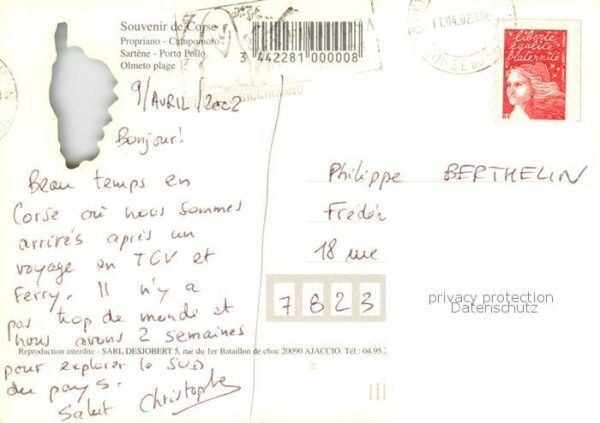 Souvenir de Corse
Propriano - Campomoro
Sartène - Porto Pollo
Olmeto plage
3 442281 000008
11.04.02
9/AVRIL/2002
Bonjour!
Beau temps en
Corse où nous sommes
arrivés après un
voyage en TGV et
Ferry. Il n'y a
pas trop de monde et
nous avons 2 semaines
Reproduction interdite - SARL DESJOBERT 5, rue du 1er Bataillon de choc 20090 AJACCIO. Tél : 04.95.2
pour explorer le SUD
du pays.
Salut Christophe
liberté
égalité
fraternité
RF
Philippe BERTHELIN
Frédér
18 rue
7823
privacy protection
Datenschutz